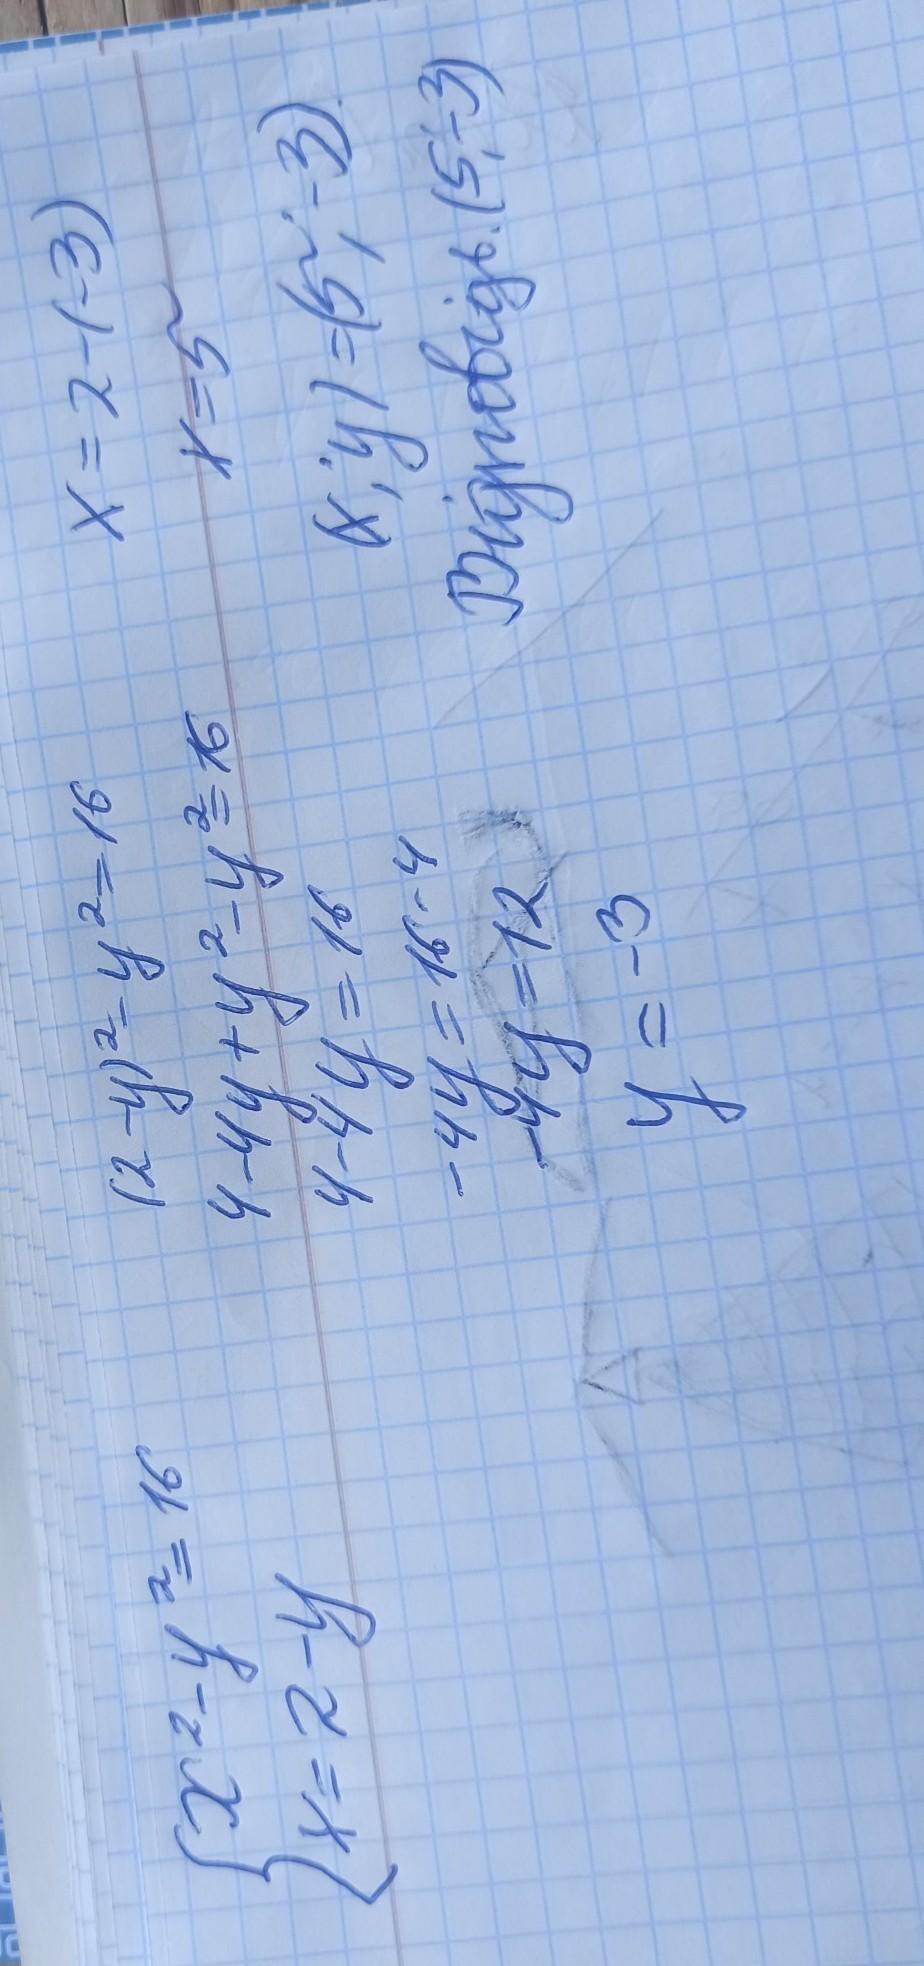 {x²-y²=16
x=2-y
(2-y)²-y²=16
4-4y+y²-y²=16
4-4y=16
-4y=16-4
-4y=12
y=-3
x=2-(-3)
x=5
(x;y)=(5;-3)
Відповідь.(5;-3)